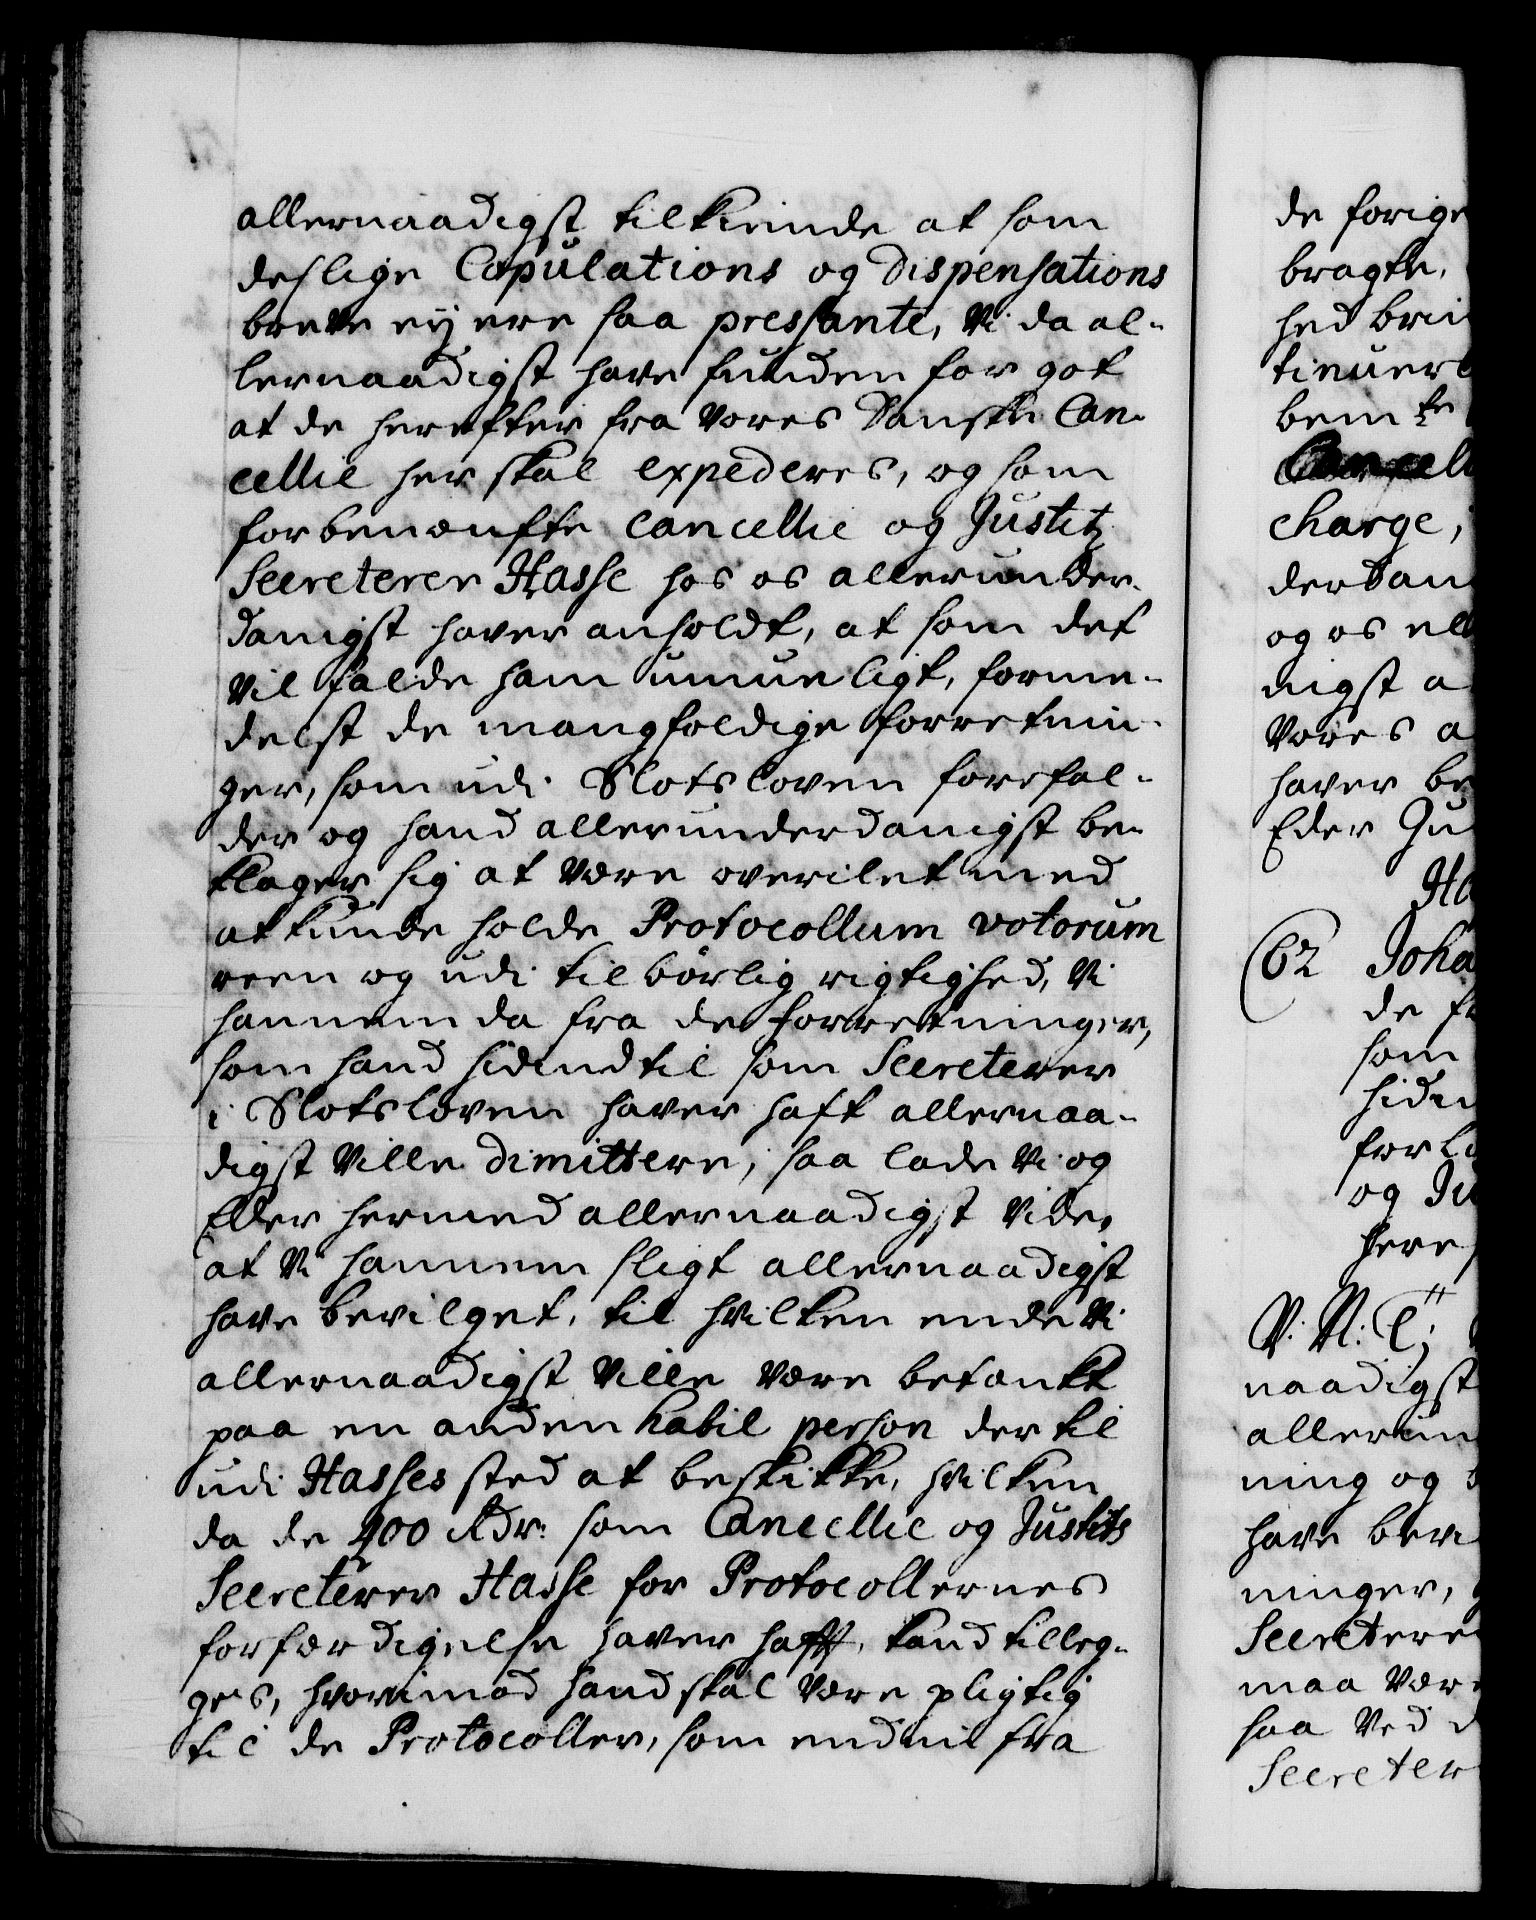 allernaadigst tilkiende at som
deslige Copulations og Dispensations
breve ey ere saa pressante, Vi da al-
lernaadigst have funden for got
at de herefter fra Vores Danske Can-
cellie her skal expederes, og som
forbenæfnte Cancellie og Justitz
Secreterer Hasse hos os allerunder-
danigst haver anholdt, at som det
vil falde ham umueligt, forme-
delst de mangfoldige forretnin-
ger, som udi Slotsloven forefal-
der og hand allerunderdanigst be-
klager sig at være overilet med
at kunde holde Protocollum votorum
reen og udi tilbørlig rigtighed, Vi
hannem da fra de forretninger,
som hand hidindtil som Secreterer
i Slotsloven haver haft allernaa-
digst Ville dimittere, saa lade Vi og
Eder hermed allernaadigst vide,
at Vi hannem sligt allernaadigst
have bevilget, til hvilken ende Vi
allernaadigst Ville være betænkt
paa en anden habil person der til
udi Hasses sted at beskikke, hvilken
da de 400 Rdr: som Cancellie og Justits
Secreterer Hasse for Protocollernes
forfærdigelse haver hafft, kand tilleg-
ges, hvorimod hand skal være pligtig
til de Protocoller, som endnu fra
de forige
bragte,
hed brin
tinuere
bem.te
Cancell
charge,
derdan
og os all
nigst a
Vores a
haver be
Eder Gu
Ha
62 Joha
de fr
som
hiden
forlo
og Ju
here
V: N: C;
naadigst
allerun
ning og
have bevi
ninger,
Secretere
maa Være
saa Ved d
Secreter